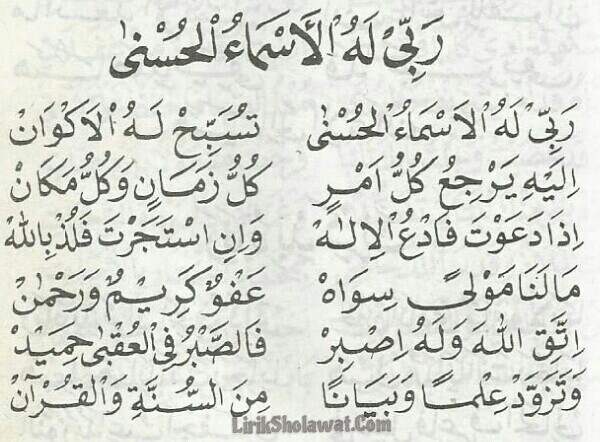 رَبِّيْ لَهُ الْأَسْمَاءُ الْحُسْنٰى
رَبِّيْ لَهُ الْاَسْمَاءُ الْحُسْنٰى تُسَبِّحُ لَهُ الْاَكْوَانْ
اِلَيْهِ يَرْجِعُ كُلُّ اَمْرٍ كُلُّ زَمَانٍ وَكُلُّ مَكَانْ
اِذَا دَعَوْتَ فَادْعُ الْاِلٰهْ وَاِنِ اسْتَجَرْتَ فَلُذْ بِاللهْ
مَالَنَا مَوْلًى سِوَاهْ عَفُوٌّ كَرِيْمٌ وَرَحْمٰنْ
اِتَّقِ اللهَ وَلَهُ اِصْبِرْ فَالصَّبْرُ فِى الْعُقْبٰى حَمِيْدْ
وَتَزَوَّدْ عِلْمًا وَبَيَانًا مِنَ السُّنَّةِ وَالْقُرْآنْ
LirikSholawat.Com